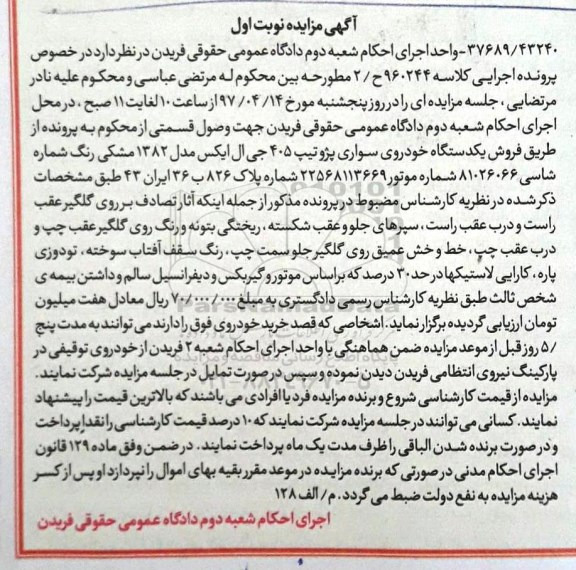 آگهی مزایده نوبت اول
۳۷۶۸۹/۴۳۲۴۰- واحد اجرای احکام شعبه دوم دادگاه عمومی حقوقی فریدن در نظر دارد در خصوص
پرونده اجرایی کلاسه ۹۶۰۲۴۴ ح/۲ مطروحه بین محکوم له مرتضی عباسی و محکوم علیه نادر
مرتضایی، جلسه مزایده ای را در روز پنجشنبه مورخ ۹۷/۰۴/۱۴ از ساعت ۱۰ لغایت ۱۱ صبح، در محل
اجرای احکام شعبه دوم دادگاه عمومی حقوقی فریدن جهت وصول قسمتی از محکوم به پرونده از
طریق فروش یکدستگاه خودروی سواری پژو تیپ ۴۰۵ جی ال ایکس مدل ۱۳۸۲ مشکی رنگ شماره
شاسی ۸۱۰۲۶۰۶۶ شماره موتور ۲۲۵۶۸۱۱۳۶۶۹ شماره پلاک ۸۲۶ ب ۳۶ ایران ۴۳ طبق مشخصات
ذکر شده در نظریه کارشناس مضبوط در پرونده مذکور از جمله اینکه آثار تصادف بر روی گلگیر عقب
راست و درب عقب راست، سپرهای جلو و عقب شکسته، ریختگی بتونه و رنگ روی گلگیر عقب چپ و
درب عقب چپ، خط و خش عمیق روی گلگیر جلو سمت چپ، رنگ سقف آفتاب سوخته، تودوزی
پاره، کارایی لاستیکها در حد ۳۰ درصد که براساس موتور و گیربکس و دیفرانسیل سالم و داشتن بیمه ی
شخص ثالث طبق نظریه کارشناس رسمی دادگستری به مبلغ ۷۰/۰۰۰/۰۰۰ ریال معادل هفت میلیون
تومان ارزیابی گردیده برگزار نماید. اشخاصی که قصد خرید خودروی فوق را دارند می توانند به مدت پنج
/۵ روز قبل از موعد مزایده ضمن هماهنگی با واحد اجرای احکام شعبه ۲ فریدن از خودروی توقیفی در
پارکینگ نیروی انتظامی فریدن دیدن نموده و سپس در صورت تمایل در جلسه مزایده شرکت نمایند.
مزایده از قیمت کارشناسی شروع و برنده مزایده فرد یا افرادی می باشند که بالاترین قیمت را پیشنهاد
نمایند. کسانی می توانند در جلسه مزایده شرکت نمایند که ۱۰ درصد قیمت کارشناسی را نقدا پرداخت
و در صورت برنده شدن الباقی را ظرف مدت یک ماه پرداخت نمایند. در ضمن وفق ماده ۱۲۹ قانون
اجرای احکام مدنی در صورتی که برنده مزایده در موعد مقرر بقیه بهای اموال را نپردازد او پس از کسر
هزینه مزایده به نفع دولت ضبط می گردد. م/ الف ۱۲۸
اجرای احکام شعبه دوم دادگاه عمومی حقوقی فریدن